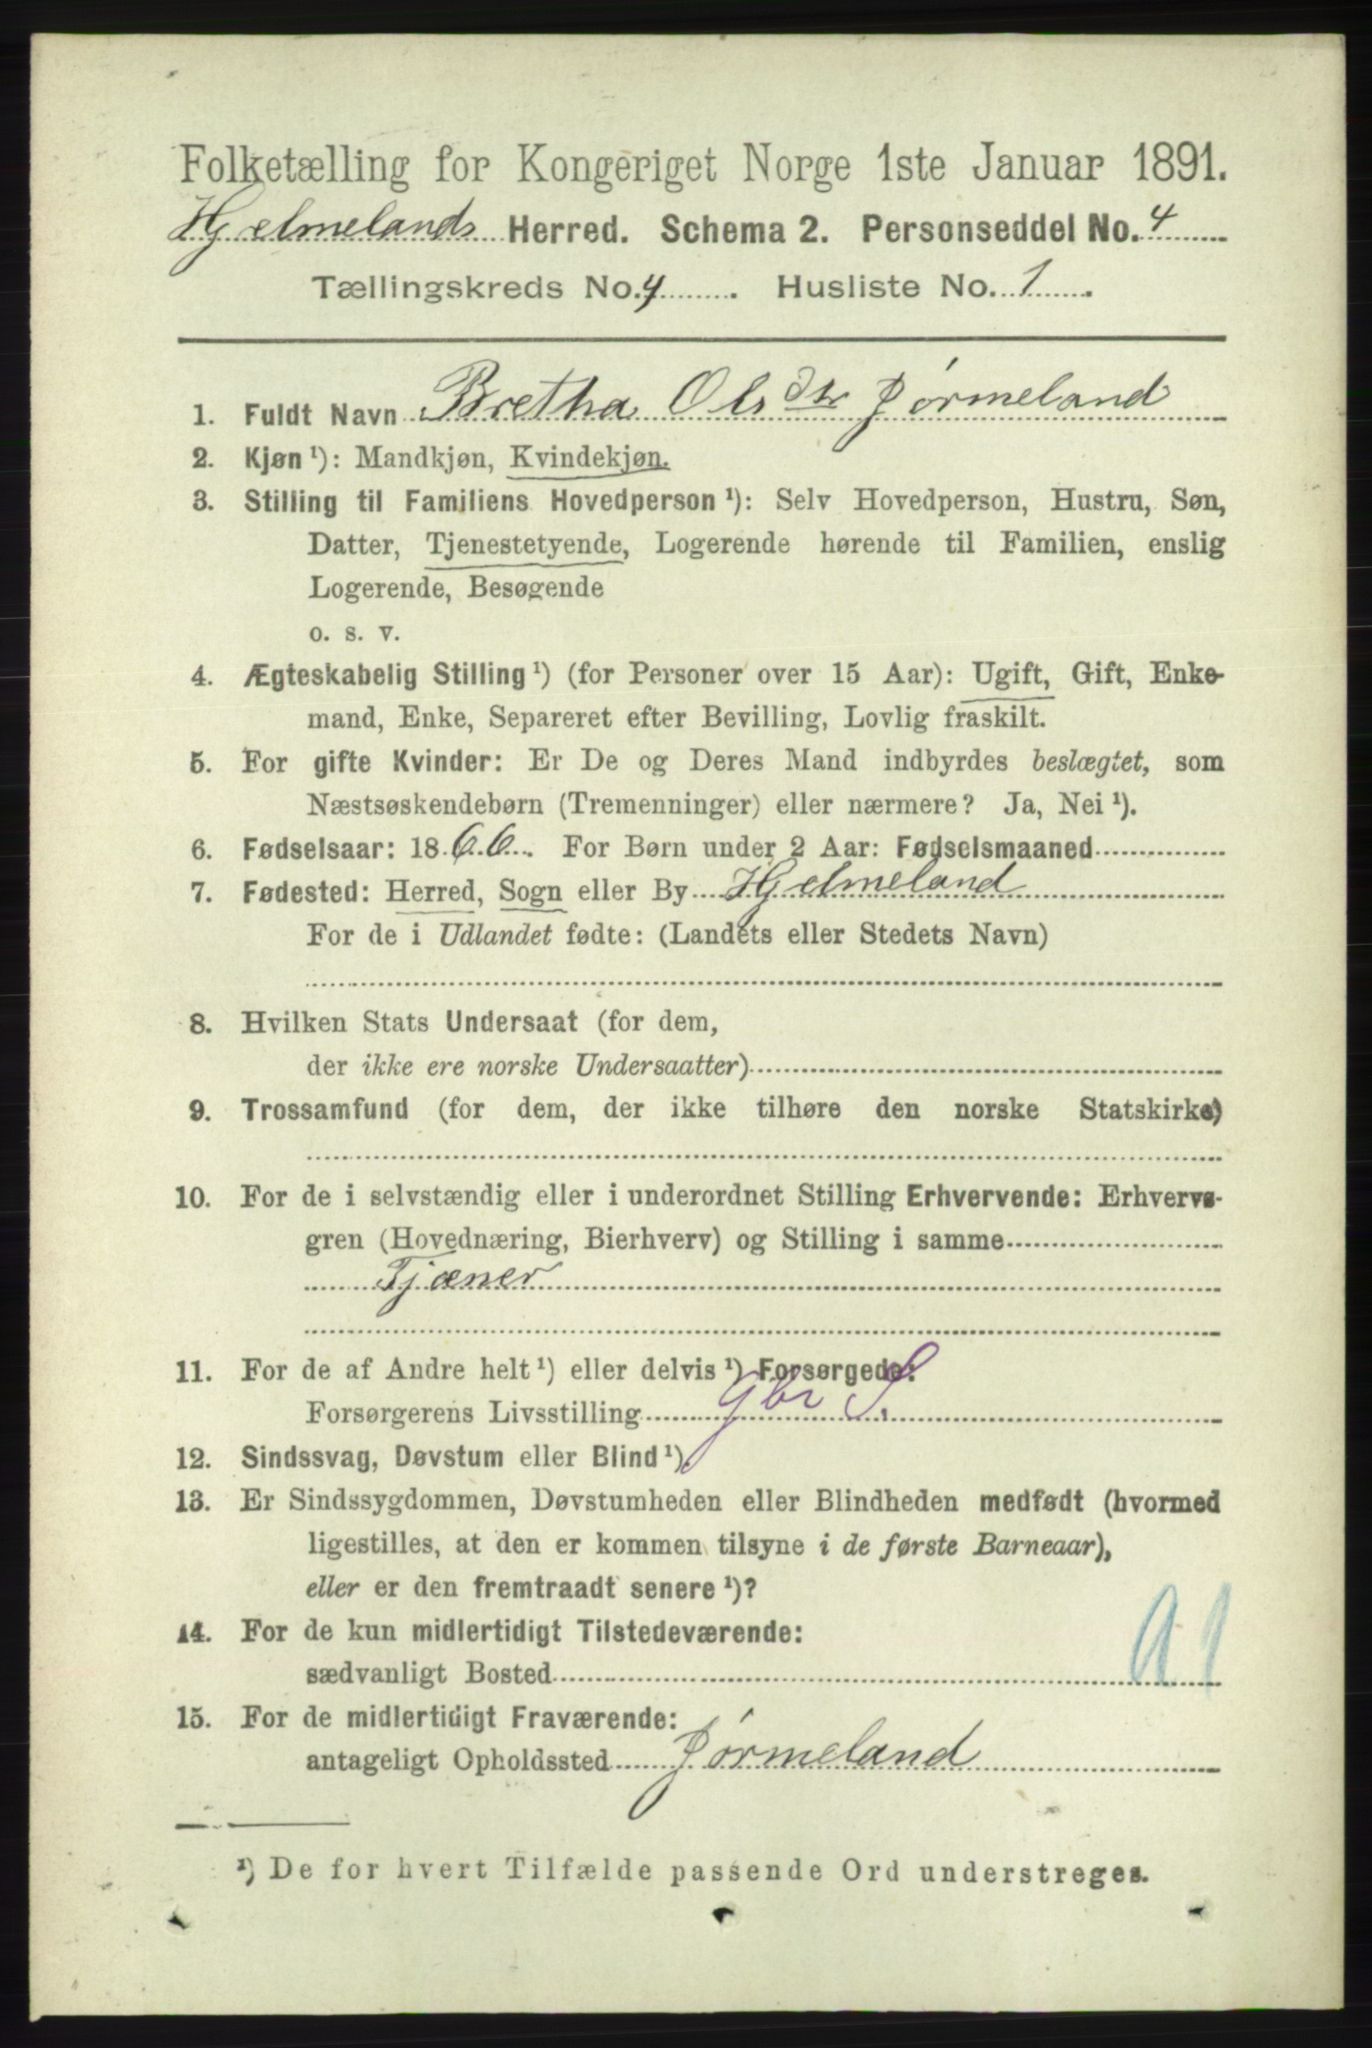 Folketælling for Kongeriget Norge 1ste Januar 1891.
Hjelmelands Herred. Schema 2. Personseddel No. 4
Tællingskreds No. 4. Husliste No. 1.
1. Fuldt Navn Bretha Olsdtr Jørmeland
2. Kjøn ¹): Mandkjøn, Kvindekjøn.
3. Stilling til Familiens Hovedperson ¹): Selv Hovedperson, Hustru, Søn,
Datter, Tjenestetyende, Logerende hørende til Familien, enslig
Logerende, Besøgende
o. s. v.
4. Ægteskabelig Stilling ¹) (for Personer over 15 Aar): Ugift, Gift, Enke-
mand, Enke, Separeret efter Bevilling, Lovlig fraskilt.
5. For gifte Kvinder: Er De og Deres Mand indbyrdes beslægtet, som
Næstsøskendebørn (Tremenninger) eller nærmere? Ja, Nei ¹).
6. Fødselsaar: 1866. For Børn under 2 Aar: Fødselsmaaned
7. Fødested: Herred, Sogn eller By Hjelmeland
For de i Udlandet fødte: (Landets eller Stedets Navn)
8. Hvilken Stats Undersaat (for dem,
der ikke ere norske Undersaatter)
9. Trossamfund (for dem, der ikke tilhøre den norske Statskirke)
10. For de i selvstændig eller i underordnet Stilling Erhvervende: Erhvervs-
gren (Hovednæring, Bierhverv) og Stilling i samme
Tjæner
11. For de af Andre helt ¹) eller delvis ¹) Forsørgede:
Forsørgerens Livsstilling Gbr S.
12. Sindssvag, Døvstum eller Blind ¹).
13. Er Sindssygdommen, Døvstumheden eller Blindheden medfødt (hvormed
ligestilles, at den er kommen tilsyne i de første Barneaar),
eller er den fremtraadt senere ¹)?
14. For de kun midlertidigt Tilstedeværende:
sædvanligt Bosted
15. For de midlertidigt Fraværende:
antageligt Opholdssted Jørmeland
¹) De for hvert Tilfælde passende Ord understreges.